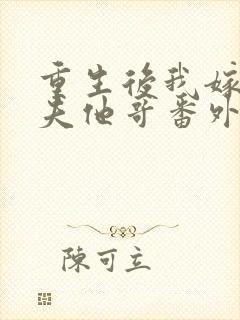 重生後我嫁
夫他哥番外
陳可立